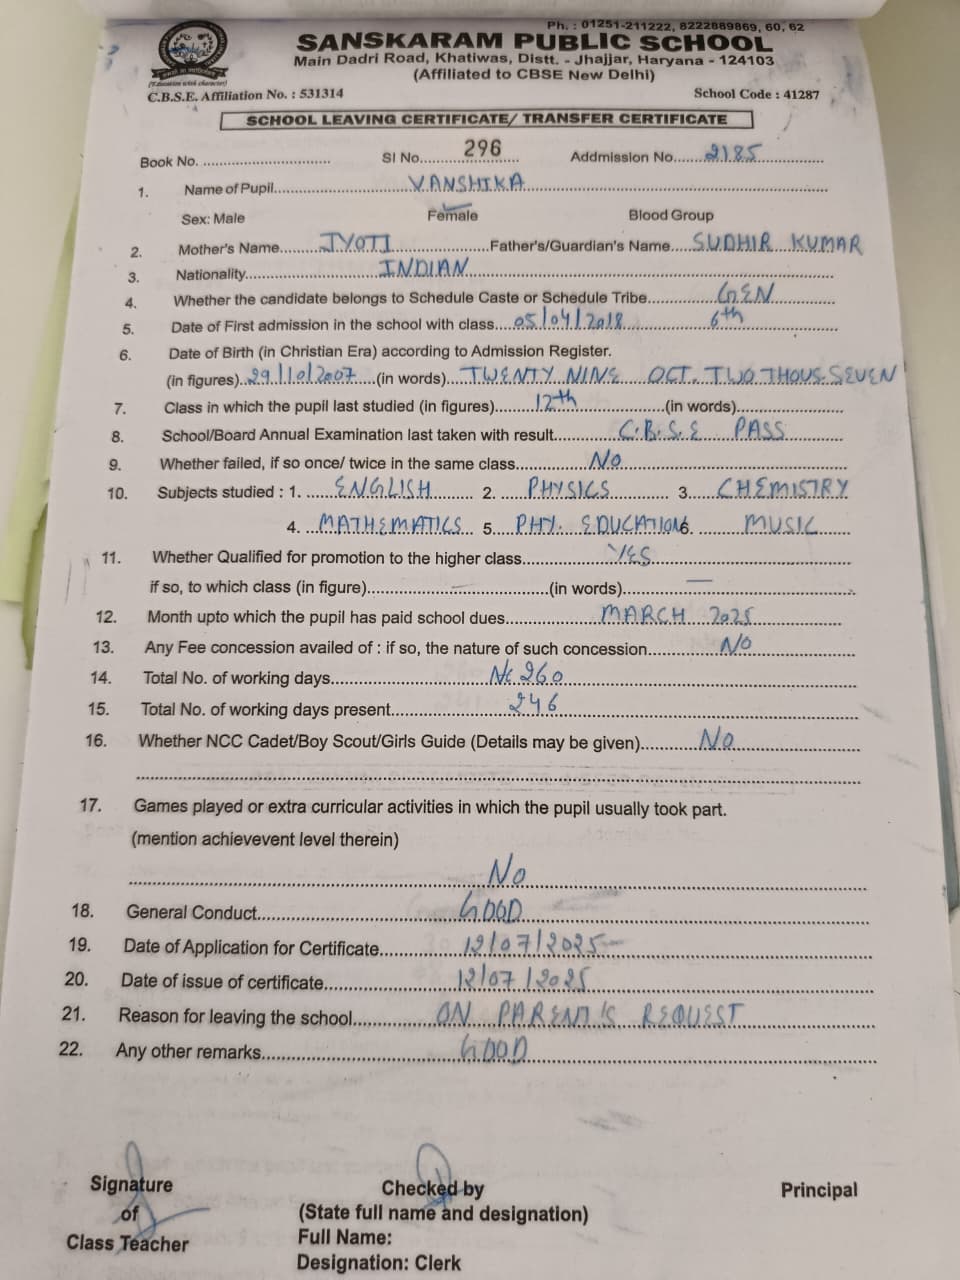 Ph. : 01251-211222, 8222889869, 60, 62
SANSKARAM PUBLIC SCHOOL
Main Dadri Road, Khatiwas, Distt. - Jhajjar, Haryana - 124103
(Affiliated to CBSE New Delhi)
(Education with character)
C.B.S.E. Affiliation No. : 531314 School Code : 41287
SCHOOL LEAVING CERTIFICATE/ TRANSFER CERTIFICATE
Book No. .................... Sl No. 296 Addmission No. 2185
1. Name of Pupil VANSHIKA
Sex: Male Female Blood Group
2. Mother's Name JYOTI Father's/Guardian's Name SUDHIR KUMAR
3. Nationality INDIAN
4. Whether the candidate belongs to Schedule Caste or Schedule Tribe GEN
5. Date of First admission in the school with class 05/04/2018 6th
6. Date of Birth (in Christian Era) according to Admission Register.
(in figures) 29/10/2007 (in words) TWENTY NINE OCT. TWO THOUS. SEVEN
7. Class in which the pupil last studied (in figures) 12th (in words)
8. School/Board Annual Examination last taken with result C.B.S.E PASS
9. Whether failed, if so once/ twice in the same class No
10. Subjects studied : 1. ENGLISH 2. PHYSICS 3. CHEMISTRY
4. MATHEMATICS 5. PHY. EDUCATION 6. MUSIC
11. Whether Qualified for promotion to the higher class YES
if so, to which class (in figure) — (in words) —
12. Month upto which the pupil has paid school dues MARCH 2025
13. Any Fee concession availed of : if so, the nature of such concession NO
14. Total No. of working days 260
15. Total No. of working days present 246
16. Whether NCC Cadet/Boy Scout/Girls Guide (Details may be given) No
17. Games played or extra curricular activities in which the pupil usually took part.
(mention achievevent level therein)
No
18. General Conduct GOOD
19. Date of Application for Certificate 12/07/2025
20. Date of issue of certificate 12/07/2025
21. Reason for leaving the school ON PARENT'S REQUEST
22. Any other remarks GOOD
Signature Checked by Principal
of (State full name and designation)
Class Teacher Full Name:
Designation: Clerk